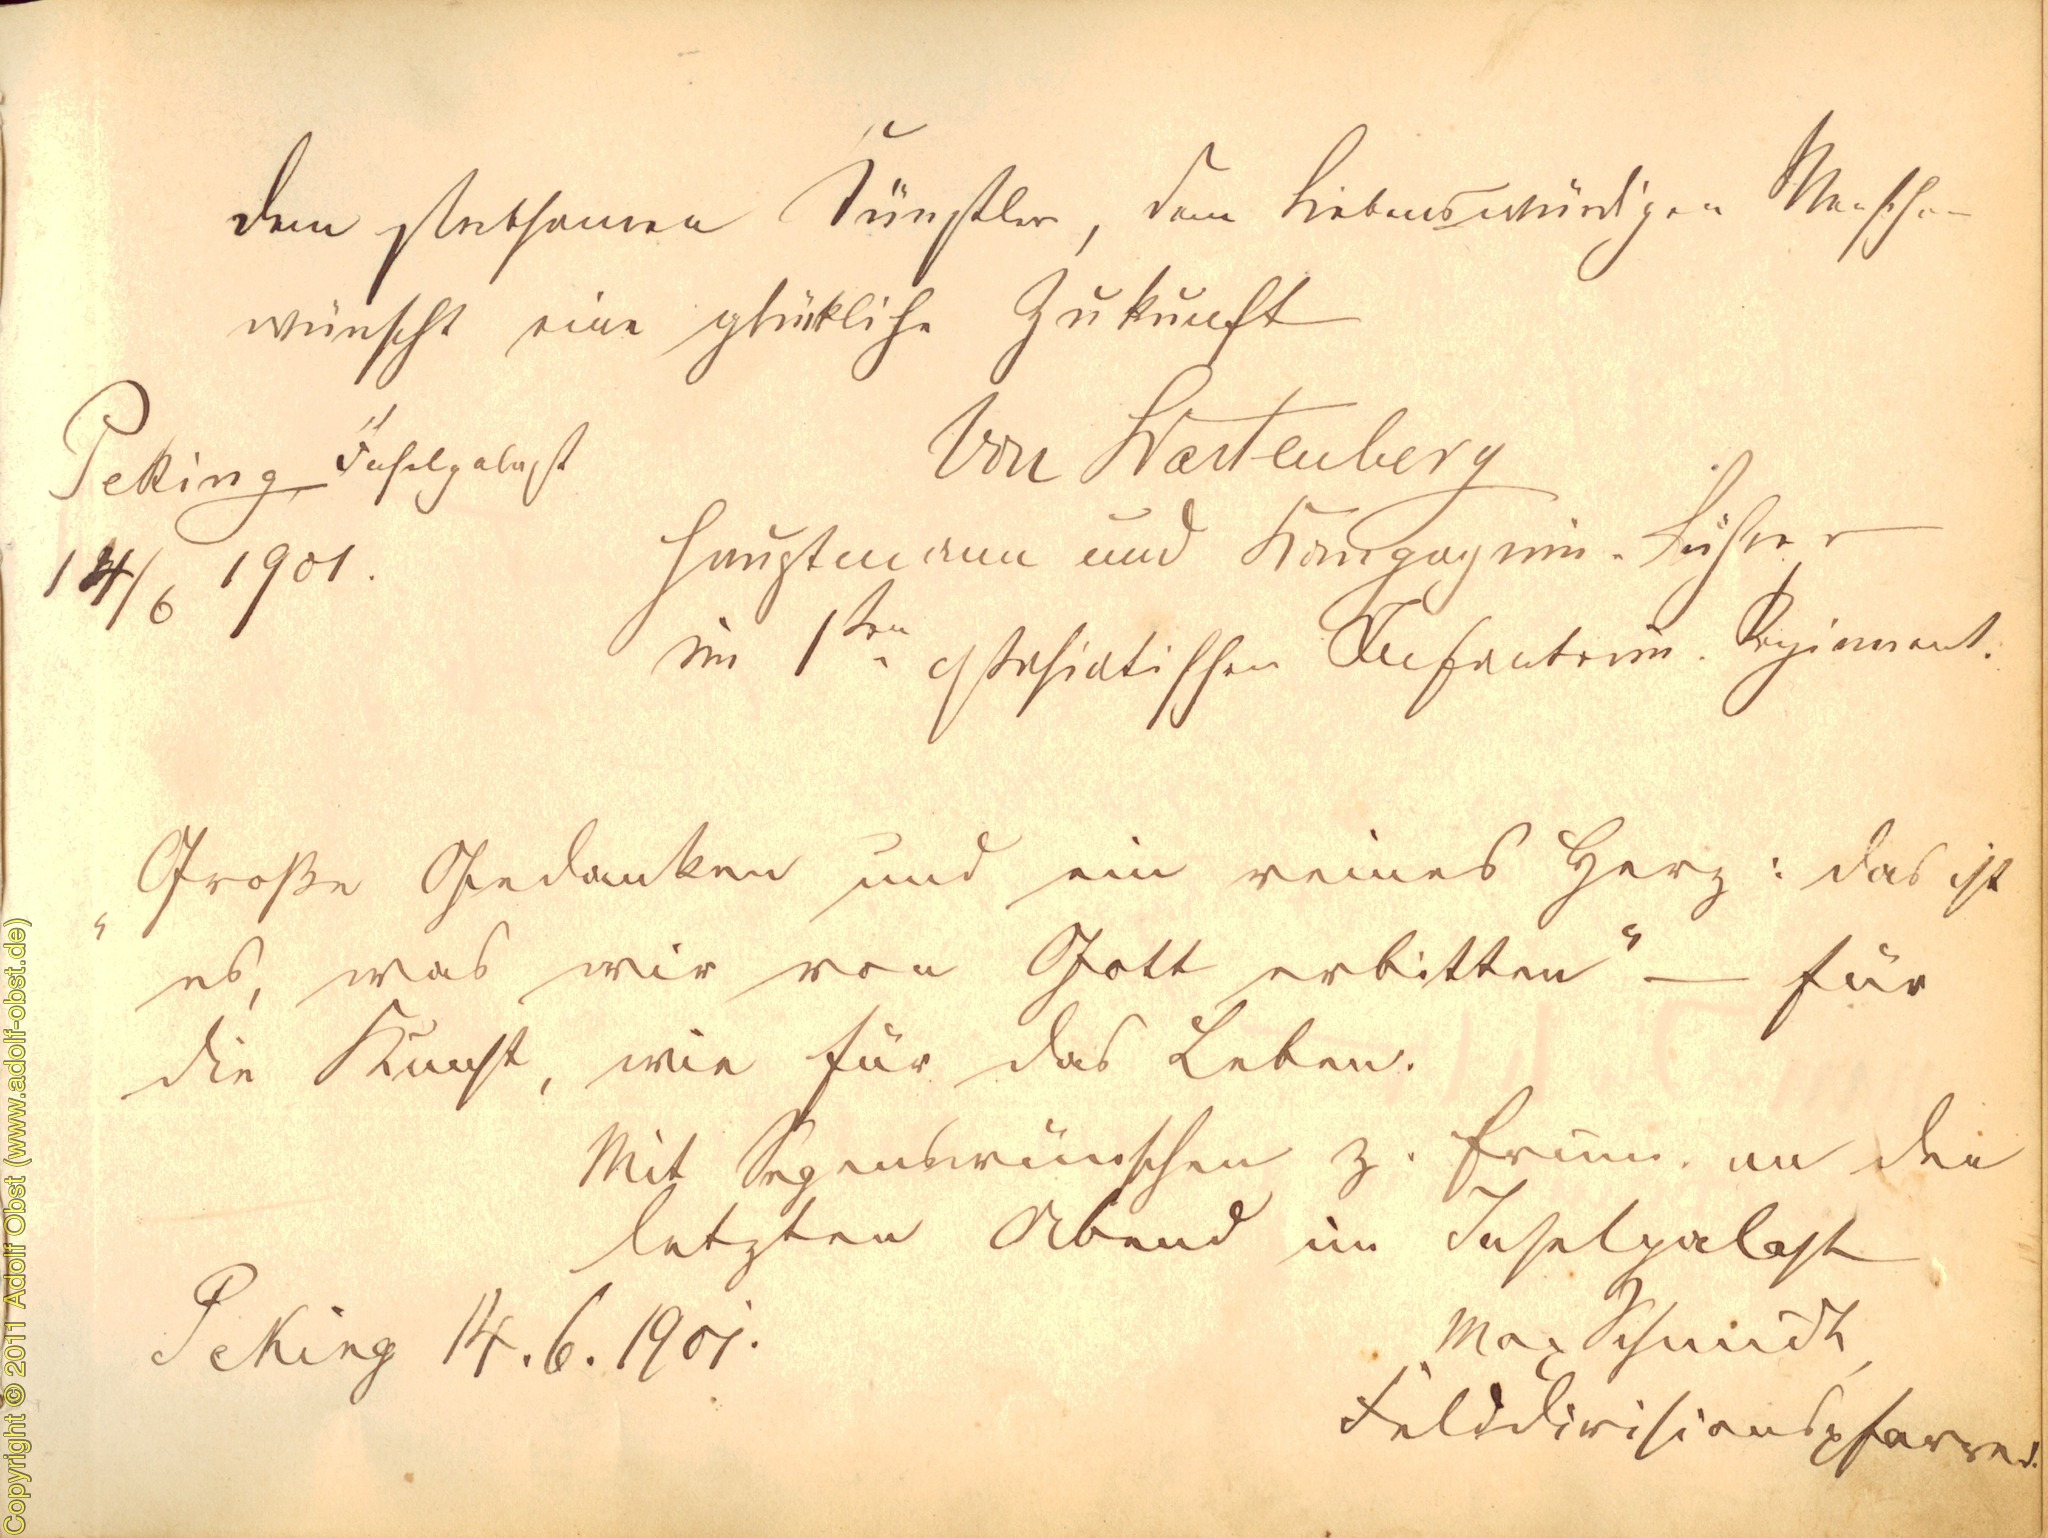 Dem strebsamen Künstler, dem liebenswürdigen Menschen
wünscht eine glückliche Zukunft
von Wartenberg
Peking, Inselpalast
14/6 1901.
Hauptmann und Kompagnie-Führer
im 1ten ostasiatischen Infanterie-Regiment.
„Große Gedanken und ein reines Herz: das ist
es, was wir von Gott erbitten“ — für
die Kunst, wie für das Leben.
Mit Segenswünschen z. Erinn. an den
letzten Abend im Inselpalast
Peking 14.6.1901.
Max Schmidt,
Felddivisionspfarrer.
Copyright © 2011 Adolf Obst (www.adolf-obst.de)